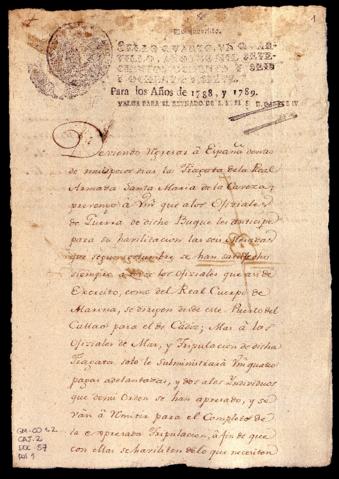 1
SELLO QUARTO, VN QUAR-
TILLO, AÑOS DE MIL SETE-
CIENTOS OCHENTA Y SEIS
Y OCHENTA Y SIETE.
Para los Años de 1788, y 1789.
VALGA PARA EL REYNADO DE S. M. EL S. D. CARLOS IV
Deviendo regresar â España dentro
de mui pocos dias la Fragata de la Real
Armada Santa Maria de la Caveza;
prevengo â Vm que a los Oficiales
de Guerra de dicho Buque les anticipe
para su havilitacion las seis
que segun costumbre se han satisfecho
siempre â los Oficiales que asi de
Exercito, como del Real Cuerpo de
Marina, se dirigen desde este Puerto del
Callao para el de Cadiz; Mas â los
Oficiales de Mar, y Tripulacion de dicha
Fragata solo le Subministrará Vm quatro
pagas adelantadas, y dos a los Individuos
que de mi Orden se han apresado, y se
ván â remitir para el Completo de
la expresada Tripulacion, â fin de que
con ellas se havilitende lo que necesiten
GM-CO 122
CAJ. 2
DOC. 57
fol 1